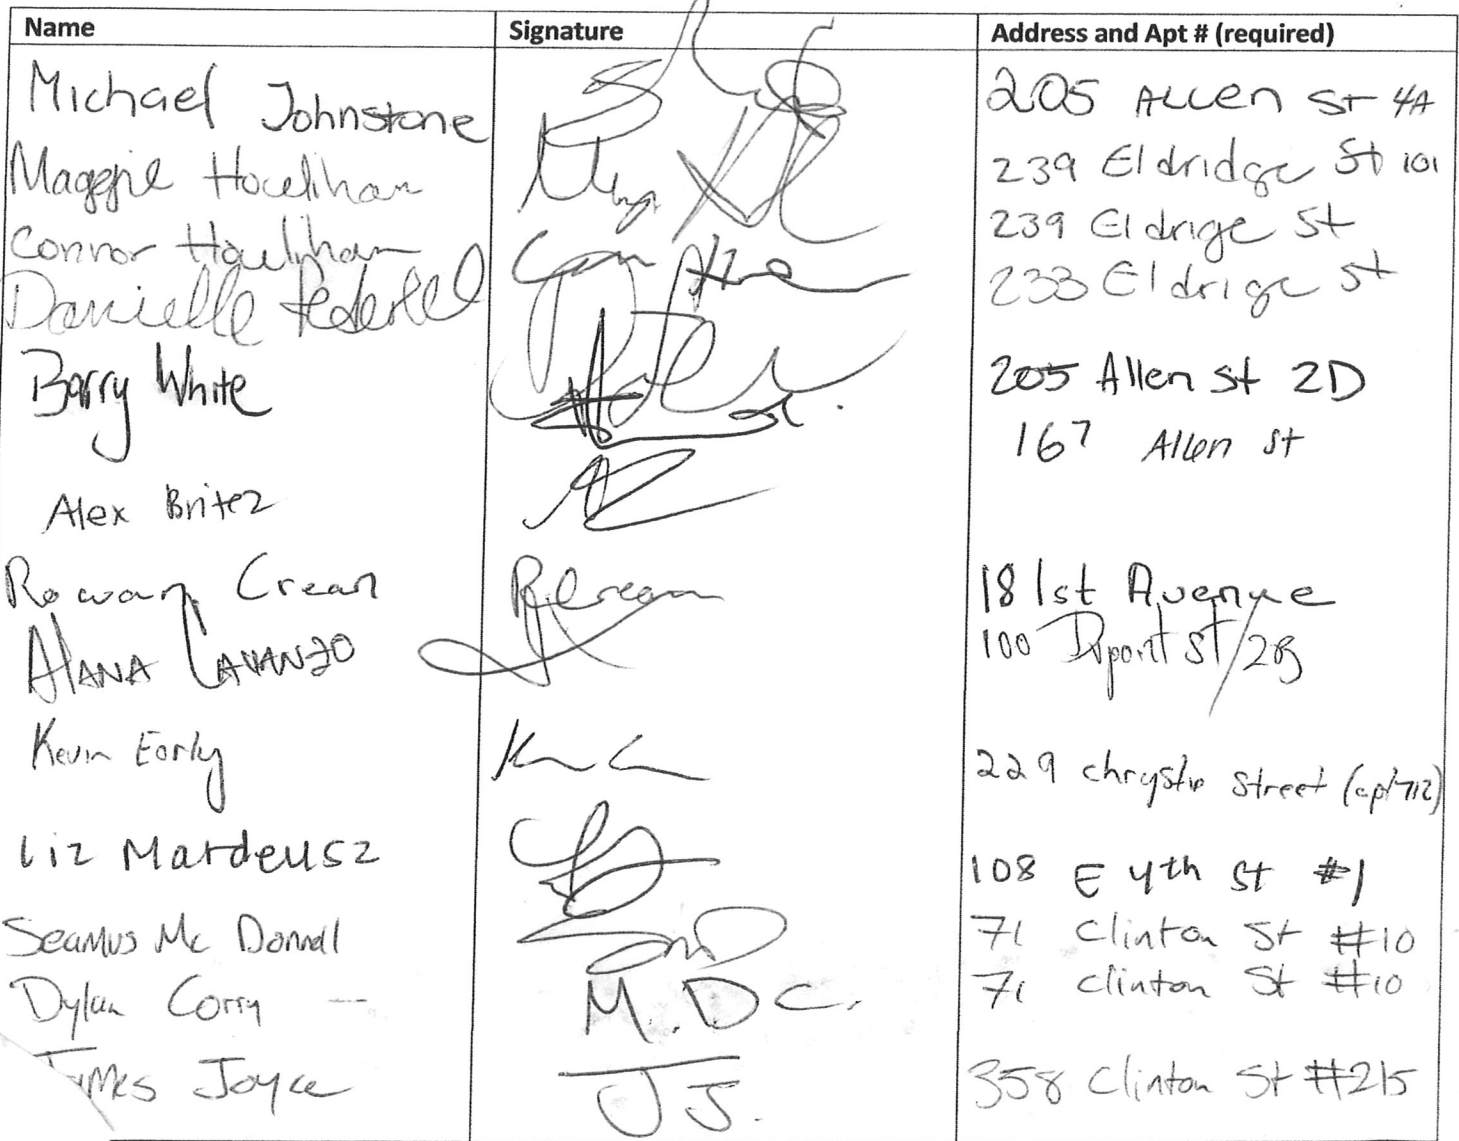 Name Signature Address and Apt # (required)
Michael Johnstone 205 Allen St 4A
Maggie Houlihan 239 Eldridge St 101
Connor Houlihan 239 Eldrige St
Danielle 233 Eldrige St
Barry White 205 Allen St 2D
Alex Britez 167 Allen St
Rowan Crean RCrean 18 1st Avenue
Alana Cavanzo 100 St/2B
Kevin Early 229 Chrystie Street (apt 712)
Liz Mardeusz 108 E 4th St #1
Seamus Mc Donnell 71 Clinton St #10
Dylan Corry M.D C. 71 Clinton St #10
James Joyce JJ. 358 Clinton St #215